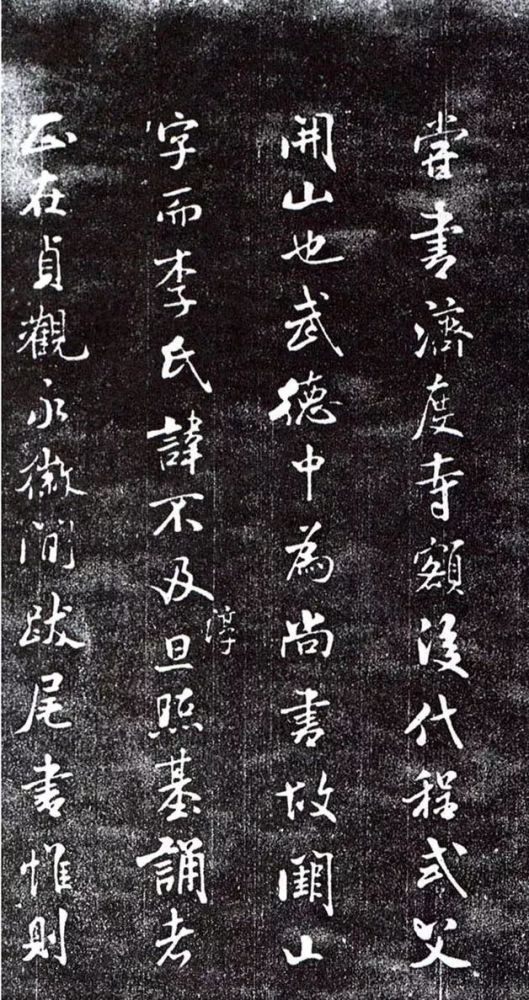 嘗書濟度寺額後代程式父
開山也武德中為尚書故闕山
字而李氏諱不及旦照基誦者
淳
正在貞觀永徽間跋尾書惟則